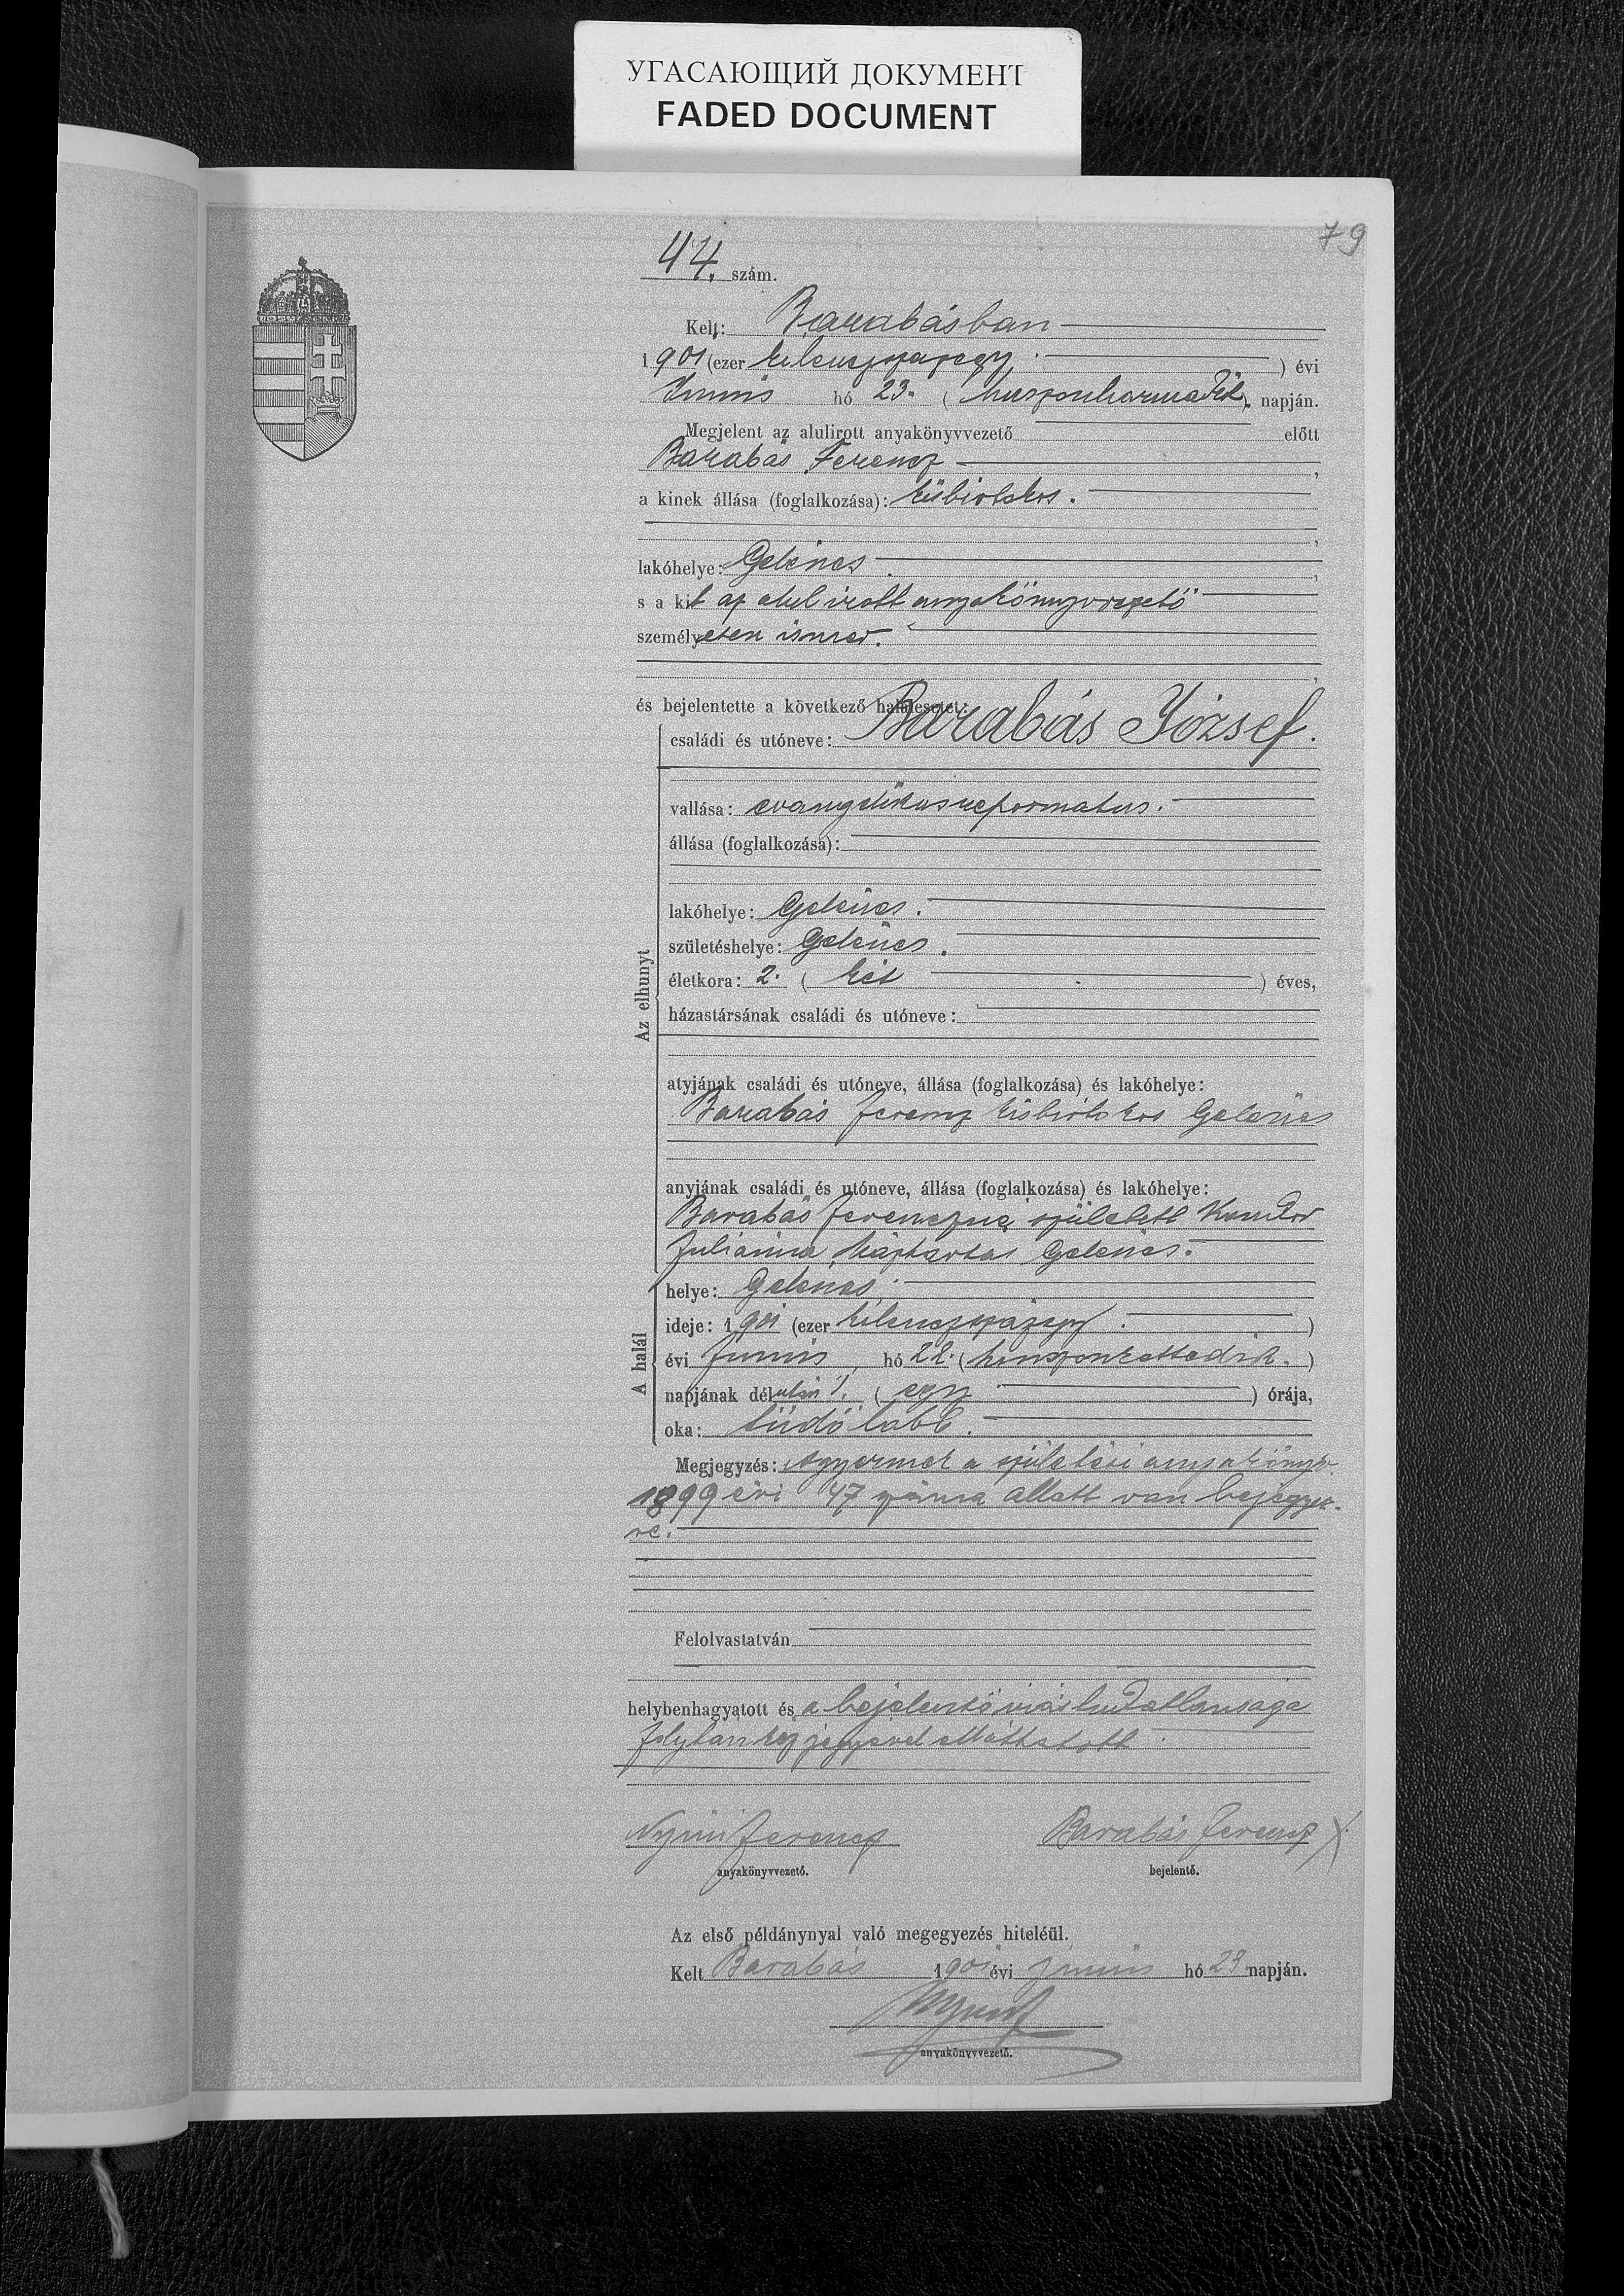 УГАСАЮЩИЙ ДОКУМЕНТ
FADED DOCUMENT
79
44. szám.
Kelt: Barabásban
1901 (ezer kilenczszázegy) évi
Junius hó 23. (huszonharmadik) napján.
Megjelent az alulirott anyakönyvvezető előtt
Barabás Ferencz,
a kinek állása (foglalkozása): kisbirtokos.
lakóhelye: Gelénes
s a kit az alul irott anyakönyvvezető
személyesen ismer.
és bejelentette a következő halálesetet:
családi és utóneve: Barabás József.
vallása: evangelikusreformatus.
állása (foglalkozása):
lakóhelye: Gelénes.
születéshelye: Gelénes.
életkora: 2. (két) éves,
házastársának családi és utóneve:
Az elhunyt
atyjának családi és utóneve, állása (foglalkozása) és lakóhelye:
Barabás Ferencz kisbirtokos Gelénes
anyjának családi és utóneve, állása (foglalkozása) és lakóhelye:
Barabás Ferenczné született Kandor
Juliánna háztartás Gelénes.
helye: Gelénes.
ideje: 1901 (ezer kilenczszázegy.)
A halál
évi Junius hó 22. (huszonkettedik.)
napjának délután 1. (egy) órája,
oka: tüdőlobb.
Megjegyzés: A gyermek a születési anyakönyv.
1899 évi 47 száma allatt van bejegyez-
ve.
Felolvastatván
helybenhagyatott és a bejelentő irástudatlansága
folytán kézjegyével elláttatott.
Ferencz Barabás Ferencz X
anyakönyvvezető. bejelentő.
Az első példánynyal való megegyezés hiteléül.
Kelt Barabás 1901 évi junius hó 23 napján.
anyakönyvvezető.